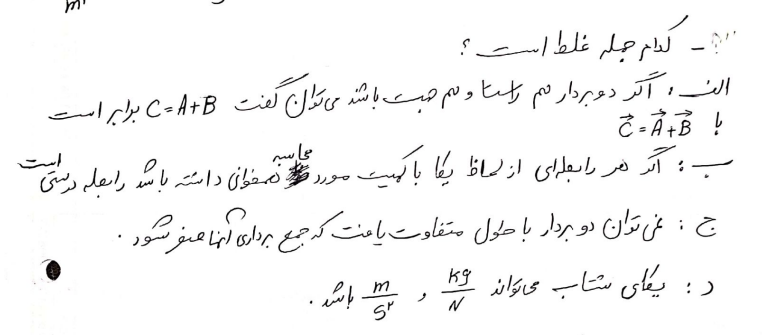 - کدام جمله غلط است ؟
الف : اگر دو بردار هم راستا و هم جهت باشد می‌توان گفت C=A+B برابر است
با C⃗=A⃗+B⃗
ب : اگر هر رابطه‌ای از لحاظ یکا با کمیت مورد محاسبه همخوانی داشته باشد رابطه درستی است
ج : نمی‌توان دو بردار با طول متفاوت یافت که جمع برداری آنها صفر شود .
د : یکای شتاب می‌تواند kg/N و m/s² باشد .